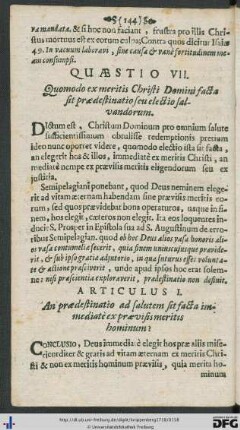 (144)
va mandata, & si hoc non faciant, frustra pro illis Christus mortuus est ex eorum culpa; Contra quos dicitur Isaiæ
49. In vacuum laboravi, sine causa & vanè fortitudinem meam consumpsi.
QUÆSTIO VII.
Quomodo ex meritis Christi Domini facta
sit prædestinatio seu electio salvandorum.
Dictum est, Christum Dominum pro omnium salute
sufficientissimum obtulisse redemptionis pretium
ideo nunc oportet videre, quomodo electio ista sit facta,
an elegerit hos & illos, immediatè ex meritis Christi, an
mediatè nempe ex prævisis meritis eligendorum seu ex
justitia.
Semipelagiani ponebant, quod Deus neminem elegerit ad vitam æternam habendam sine prævisis meritis eorum, sed quos prævidebat bona operaturos, usque in finem, hos elegit, cæteros non elegit. Ita eos loquentes inducit S. Prosper in Epistola sua ad S. Augustinum de erroribus Semipelagian. quod ab hoc Deus alios vasa honoris alios vasa contumeliæ fecerit, quia finem uniuscujusque præviderit, & sub ipso gratiæ adjutorio, in qua futurus esset voluntate & actione præsciverit, unde apud ipsos hoc erat solemne: nisi præscientia exploraverit, prædestinatio non definit.
ARTICULUS I.
An prædestinatio ad salutem sit facta immediatè ex prævisis meritis
hominum?
Conclusio, Deus immediatè elegit hos præ aliis misericorditer & gratis ad vitam æternam ex meritis Christi & non ex meritis hominum prævisis, quia merita
hominum